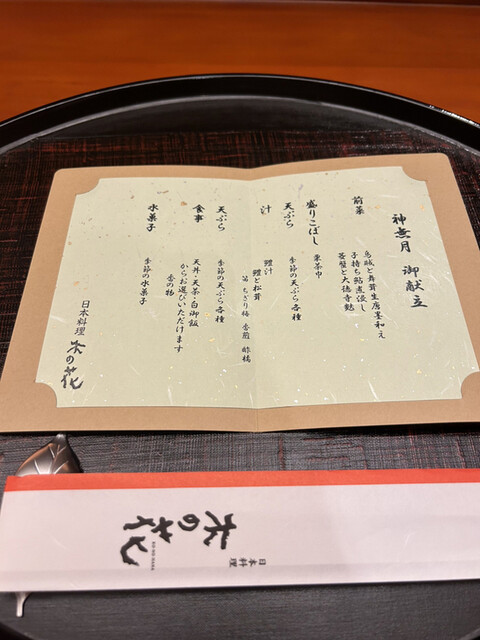 神無月 御献立
前菜
烏賊と舞茸生唐墨和え
子持ち鮎煮浸し
蒼蟹と大徳寺麩
盛りこぼし
栗茶巾
天ぷら
季節の天ぷら各種
汁
鱧汁
鱧と松茸
笛 ちぎり梅 香煎 酢橘
天ぷら
季節の天ぷら各種
食事
天丼・天茶・白御飯
からお選びいただけます
香の物
水菓子
季節の水菓子
日本料理 木の花
日本料理
木の花